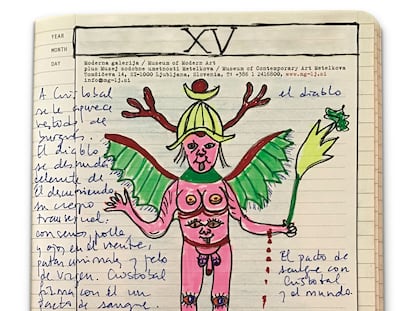 YEAR
MONTH
DAY
XV
Moderna galerija / Museum of Modern Art
plus Muzej sodobne umetnosti Metelkova / Museum of Contemporary Art Metelkova
Tomšičeva 14, SI-1000 Ljubljana, Slovenia, T: +386 1 2416800, www.mg-lj.si
info@mg-lj.si
A Cristobal
se le aparece
vestido de
burgués.
El diablo
se desnuda
delante de
él descubriendo
su cuerpo
transexual.
con senos, polla
y ojos en el vientre,
patas animals y pelo
de virgen. Cristobal
firma con él un
Pacto de sangre.
el diablo
El pacto de
sangre con
Cristobal
y el mundo.